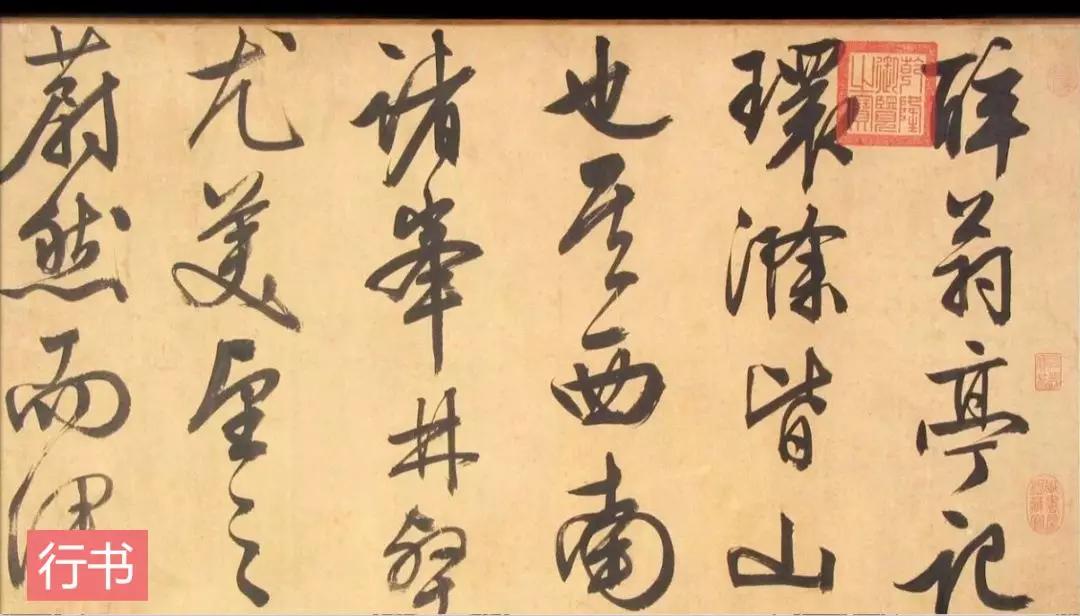 醉翁亭記
環滁皆山
也其西南
諸峯林壑
尤美望之
蔚然而深
乾隆
御覽
之寶
行书